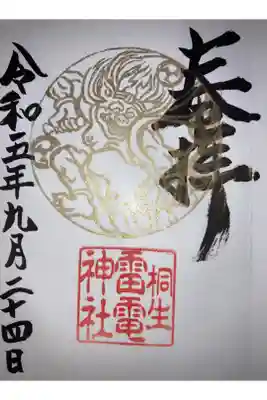 奉拝
桐生
雷電
神社
令和五年九月二十四日